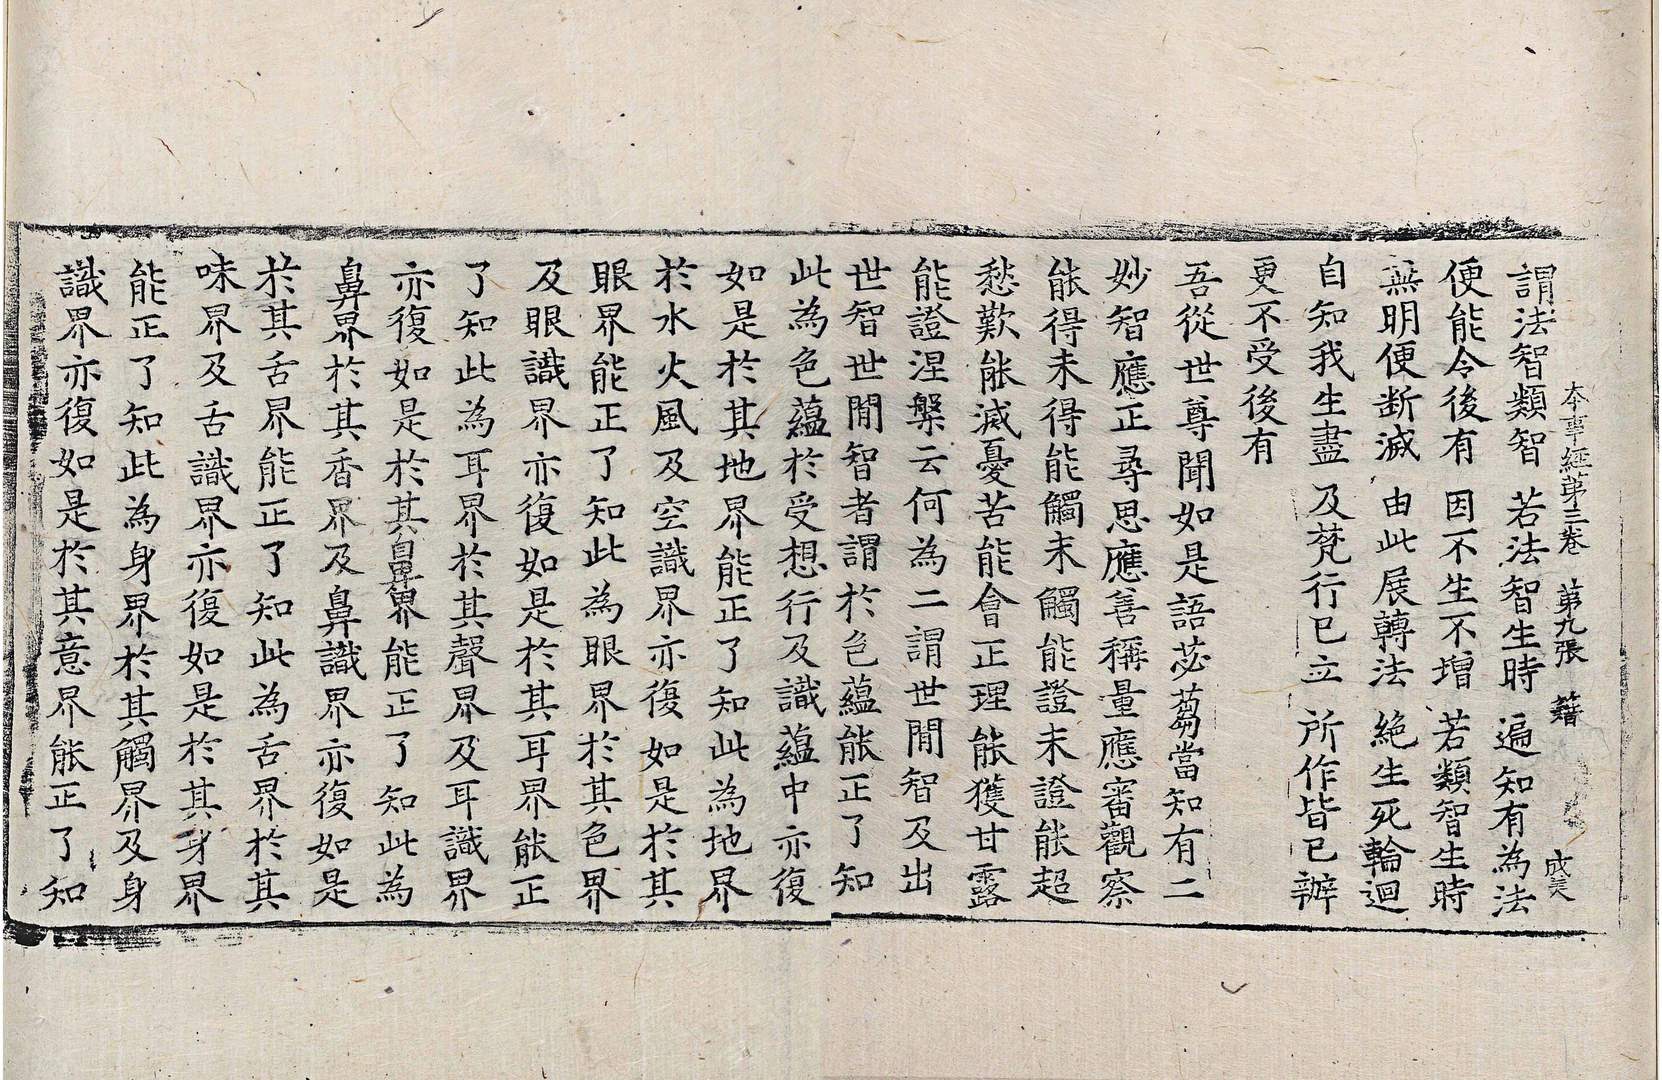 本事經第三卷 第九張 籍 成美
謂法智類智 若法智生時 遍知有為法
便能令後有 因不生不增 若類智生時
無明便断滅 由此展轉法 絶生死輪迴
自知我生盡 及梵行已立 所作皆已辦
更不受後有
吾從世尊聞如是語苾蒭當知有二
妙智應正尋思應善稱量應審觀察
能得未得能觸未觸能證未證能超
愁歎能滅憂苦能會正理能獲甘露
能證涅槃云何為二謂世間智及出
世智世間智者謂於色蘊能正了知
此為色蘊於受想行及識蘊中亦復
如是於其地界能正了知此為地界
於水火風及空識界亦復如是於其
眼界能正了知此為眼界於其色界
及眼識界亦復如是於其耳界能正
了知此為耳界於其聲界及耳識界
亦復如是於其鼻界能正了知此為
鼻界於其香界及鼻識界亦復如是
於其舌界能正了知此為舌界於其
味界及舌識界亦復如是於其身界
能正了知此為身界於其觸界及身
識界亦復如是於其意界能正了知